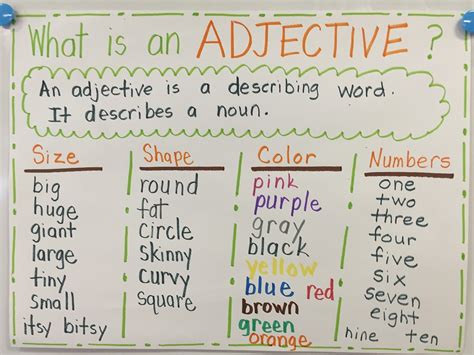 What is an ADJECTIVE?
An adjective is a describing word.
It describes a noun.
Size
big
huge
giant
large
tiny
small
itsy bitsy
Shape
round
fat
circle
skinny
curvy
square
Color
pink
purple
gray
black
yellow
blue red
brown
green
orange
Numbers
one
two
three
four
five
six
seven
eight
nine ten